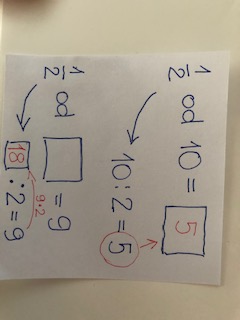 1/2 od 10 = 5
10 : 2 = 5
1/2 od = 9
9·2
18 : 2 = 9